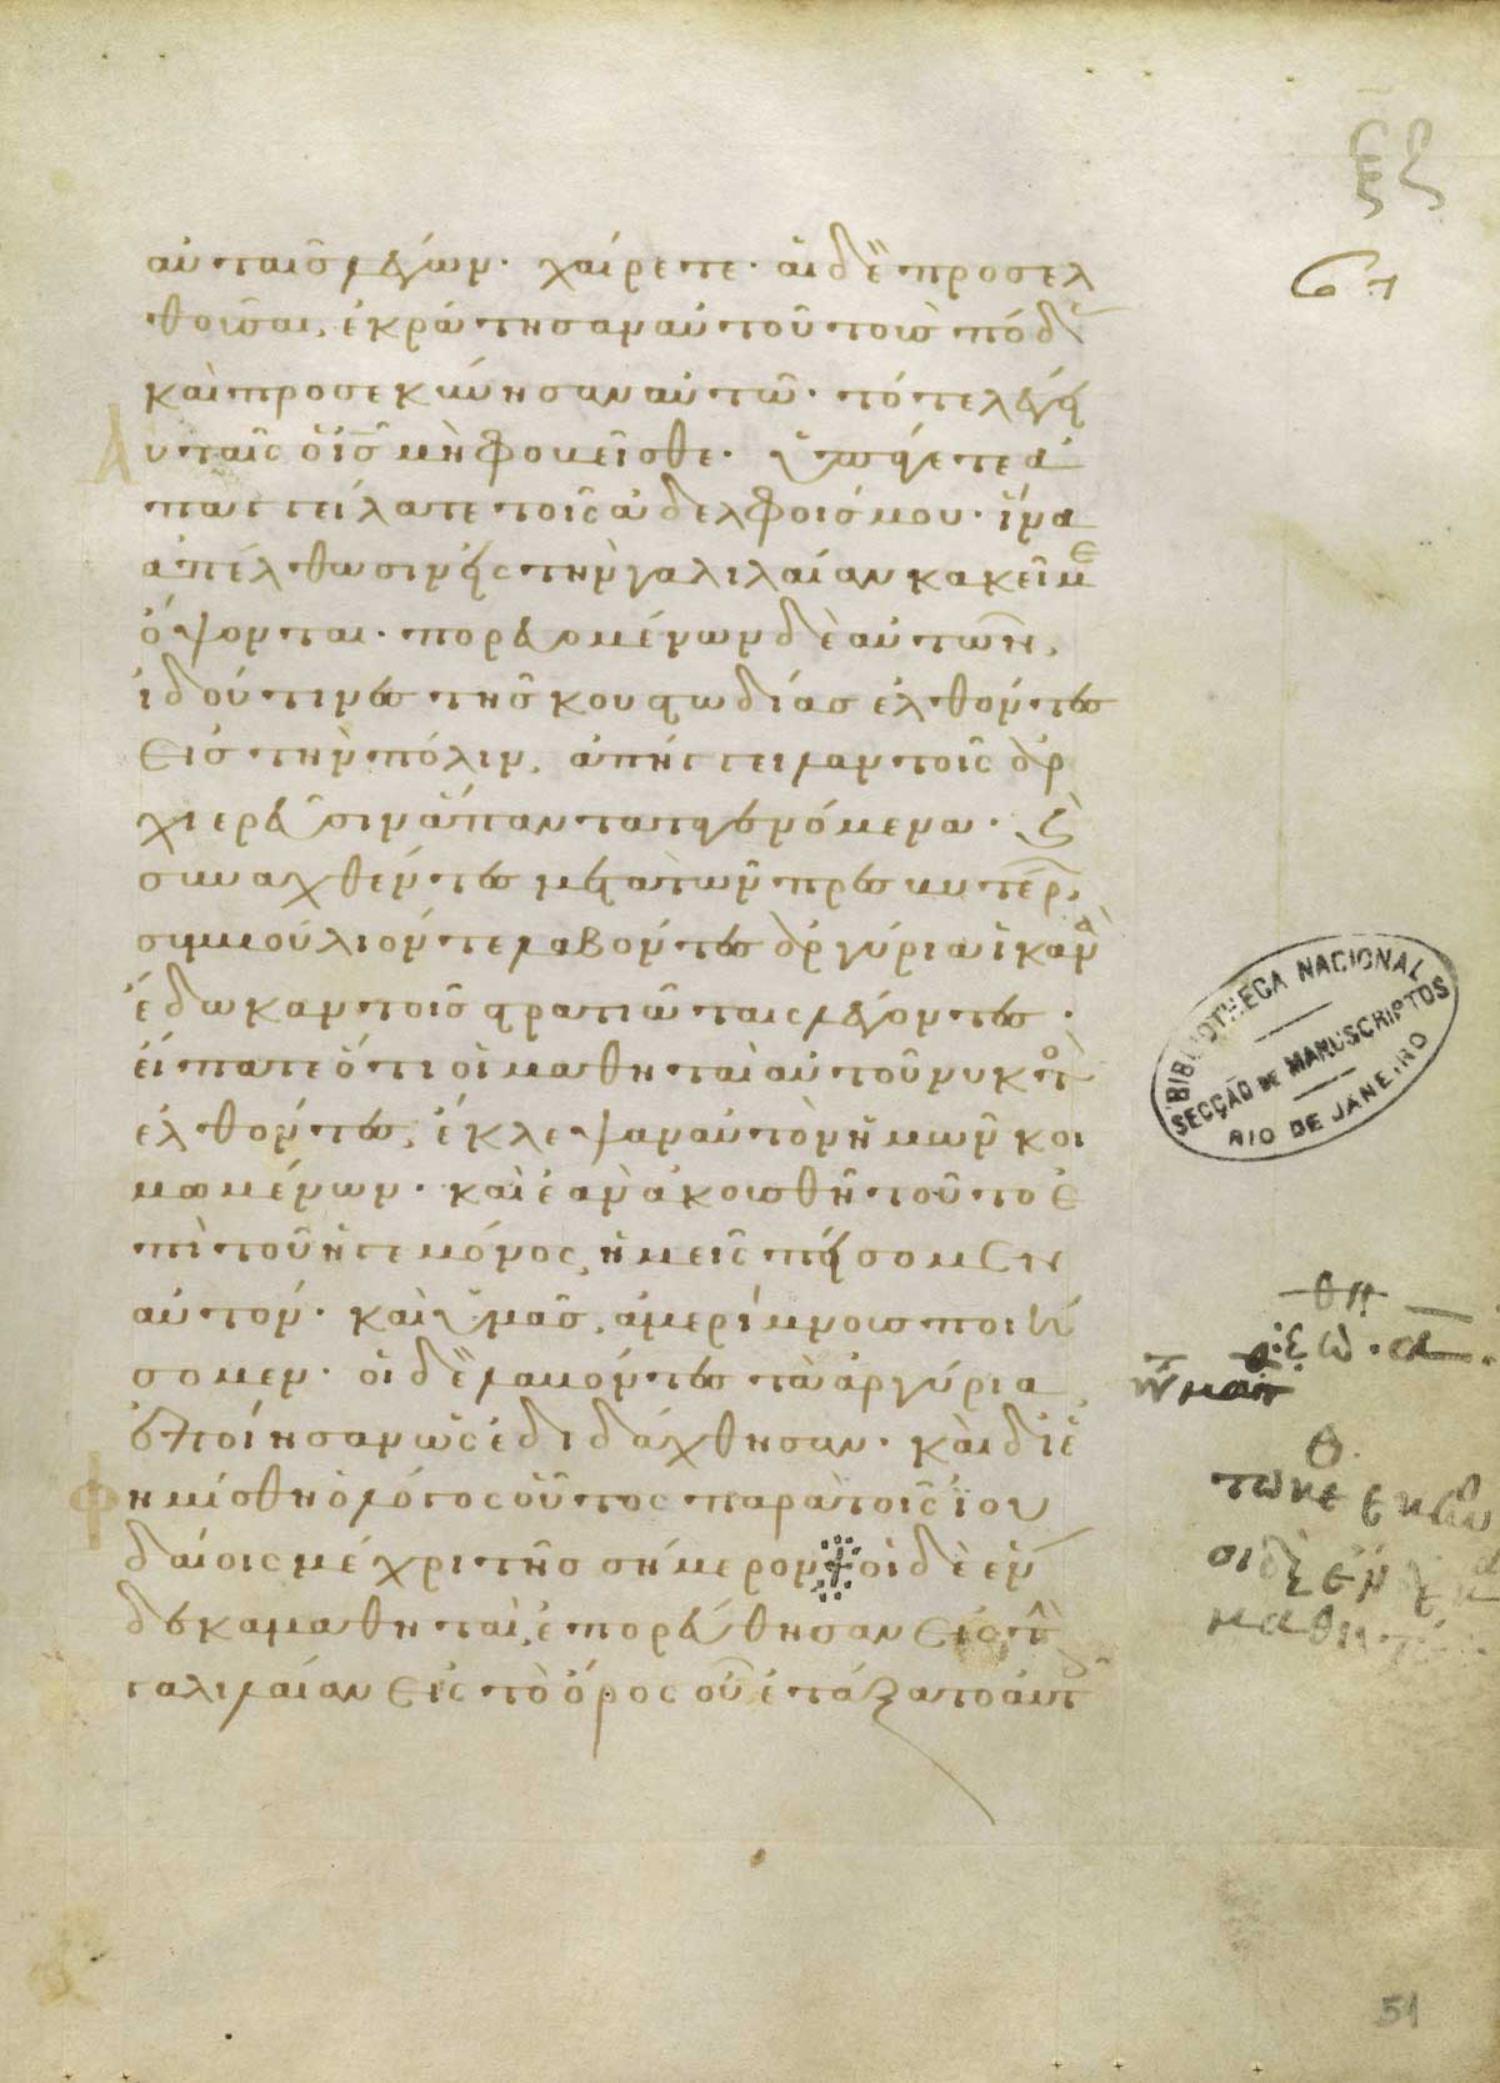 ξζ
67
αὐταῖς λέγων· χαίρετε· αἱ δὲ προσελ
θοῦσαι, ἐκράτησαν αὐτοῦ τοὺς πόδ
καὶ προσεκύνησαν αὐτῶ· τότε λέγει
αυταῖς ὁ ις̅ μὴ φοβεῖσθε· ὑπάγετε ἀ
παγγείλατε τοῖς ἀδελφοῖς μου· ἵνα
ἀπέλθωσιν εἰς τὴν γαλιλαίαν κακεῖ με
ὄψονται· πορευομένων δὲ αὐτῶν,
ἰδού τινες τῆς κουστωδίας ἐλθόντες
εἰς τὴν πόλιν, ἀπήγγειλαν τοῖς ἀρ
χιερεῦσιν ἅπαντα τα γενόμενα· καὶ
συναχθέντες μετὰ τῶν πρεσβυτέρ,
συμβούλιόν τε λαβόντες ἀργύρια ἱκανὰ
ἔδωκαν τοῖς στρατιώταις λέγοντες·
εἴπατε ὅτι οἱ μαθηταὶ αὐτοῦ νυκτὸ
ἐλθόντες, ἔκλεψαν αὐτὸν ἡμῶν κοι
μωμένων· καὶ ἐὰν ἀκουσθῆ τοῦτο ἐ
πὶ τοῦ ἡγεμόνος, ἡμεῖς πείσομεν
αὐτόν· καὶ ὑμᾶς, ἀμερίμνους ποιή
σομεν· οἱ δὲ λαβόντες τὰ ἀργύρια,
ἐποίησαν ὡς ἐδιδάχθησαν· καὶ διε
φημίσθη ὁ λόγος οὗτος παρὰ τοῖς ἰου
δαίοις μέχρι τῆς σήμερον οἱ δὲ ἕν
δεκα μαθηταὶ, ἐπορεύθησαν εἰς τὴ
γαλιλαίαν εἰς τὸ ὄρος οὗ ἐτάξατο αὐτ
BIBLIOTHECA NACIONAL
SECÇÃO DE MANUSCRIPTOS
RIO DE JANEIRO
51